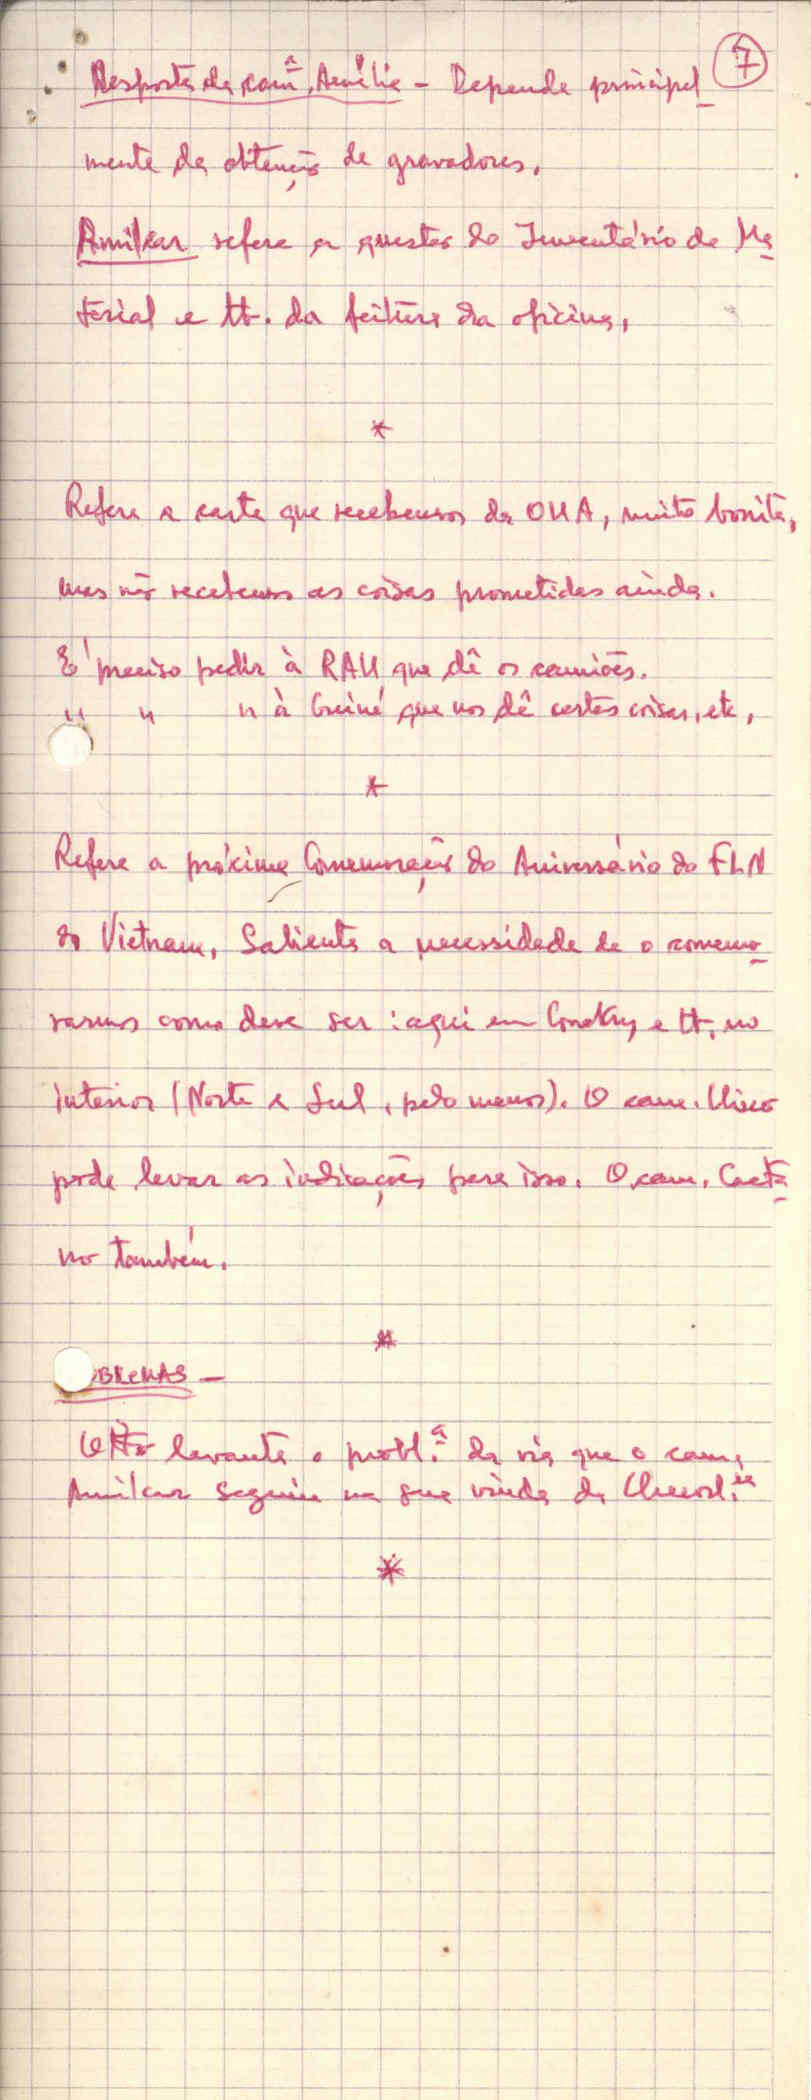 7
Resposta da cam.ª Amélia - Depende principal
mente da obtenção de gravadores.
Amílcar refere a questão do Inventário de Ma
terial e tb. da feitura da oficina,
*
Refere a carta que recebemos da OUA, muito bonita,
mas não recebemos as coisas prometidas ainda.
É preciso pedir à RAU que dê os camiões.
" " " à Guiné que nos dê certas coisas, etc,
*
Refere a próxima Comemoração do Aniversário do FLN
do Vietnam, Salienta a necessidade de o comemo
rarmos como deve ser: aqui em Conakry e tb. no
interior (Norte e Sul, pelo menos). O cam. Chico
pode levar as indicações para isso. O cam. Caeta
no também.
*
BLEMAS -
Otto levanta o probl.ª da via que o cam,
Amílcar seguiu na sua vinda da
*